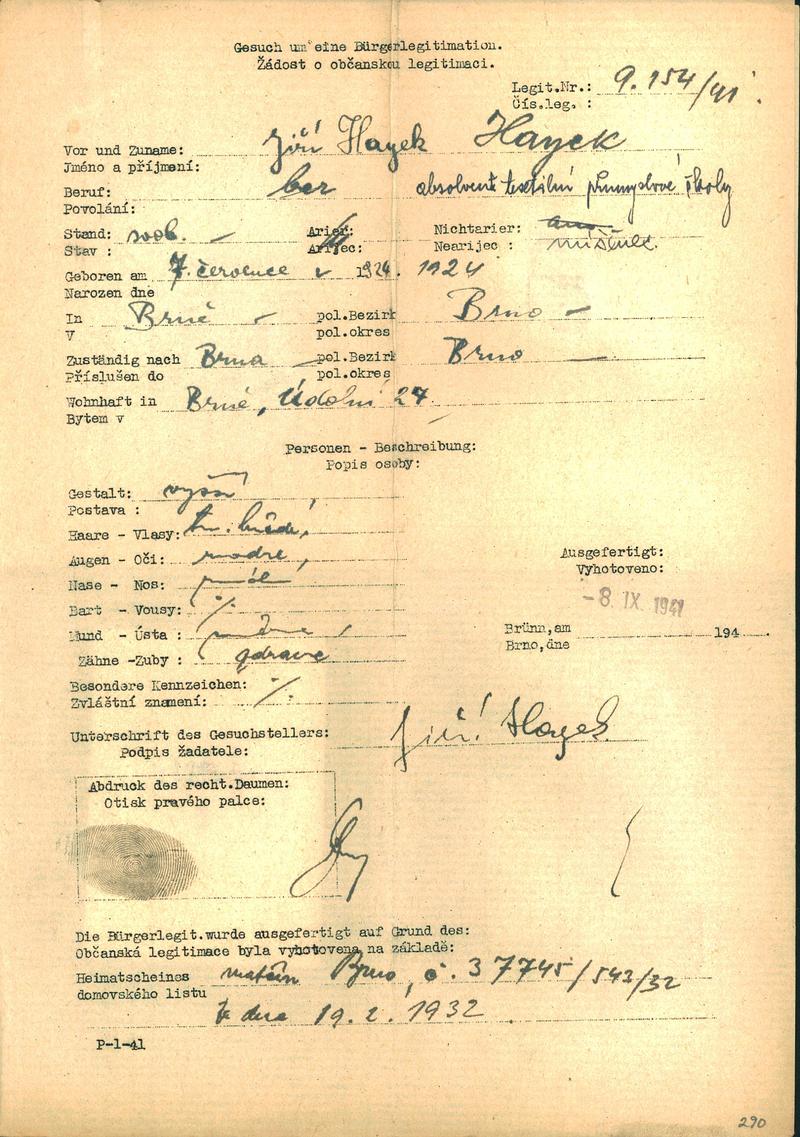 Gesuch um eine Bürgerlegitimation.
Žádost o občanskou legitimaci.
Legit.Nr.: 9.154/41
Čís.leg. :
Vor und Zuname: Jiří Hayek Hayek
Jméno a příjmení:
Beruf: bez absolvent textilní průmyslové školy
Povolání:
Stand: svob. Arier: Nichtarier: ano
Stav : Arijec: Nearijec : míšenec.
Geboren am 7. července 1924. 1924
Narozen dne
In Brně pol.Bezirk Brno
V pol.okres
Zuständig nach Brna pol.Bezirk Brno
Příslušen do pol.okres
Wohnhaft in Brně, Údolní 27
Bytem v
Personen - Beschreibung:
Popis osoby:
Gestalt: vyšší
Postava :
Haare - Vlasy: tm. hnědé,
Augen - Oči: modré,
Nase - Nos:
Bart - Vousy: %
Mund - Ústa :
Zähne -Zuby : zdravé
Ausgefertigt:
Vyhotoveno:
-8. IX. 1941
Brünn,am 194
Brno,dne
Besondere Kennzeichen: %
Zvláštní znamení:
Unterschrift des Gesuchstellers: Jiří Hayek
Podpis žadatele:
Abdruck des recht.Daumen:
Otisk pravého palce:
Die Bürgerlegit.wurde ausgefertigt auf Grund des:
Občanská legitimace byla vyhotovena na základě:
Heimatscheines Brno, č. 37745/543/32
domovského listu
ze dne 19.2.1932
P-1-41
290